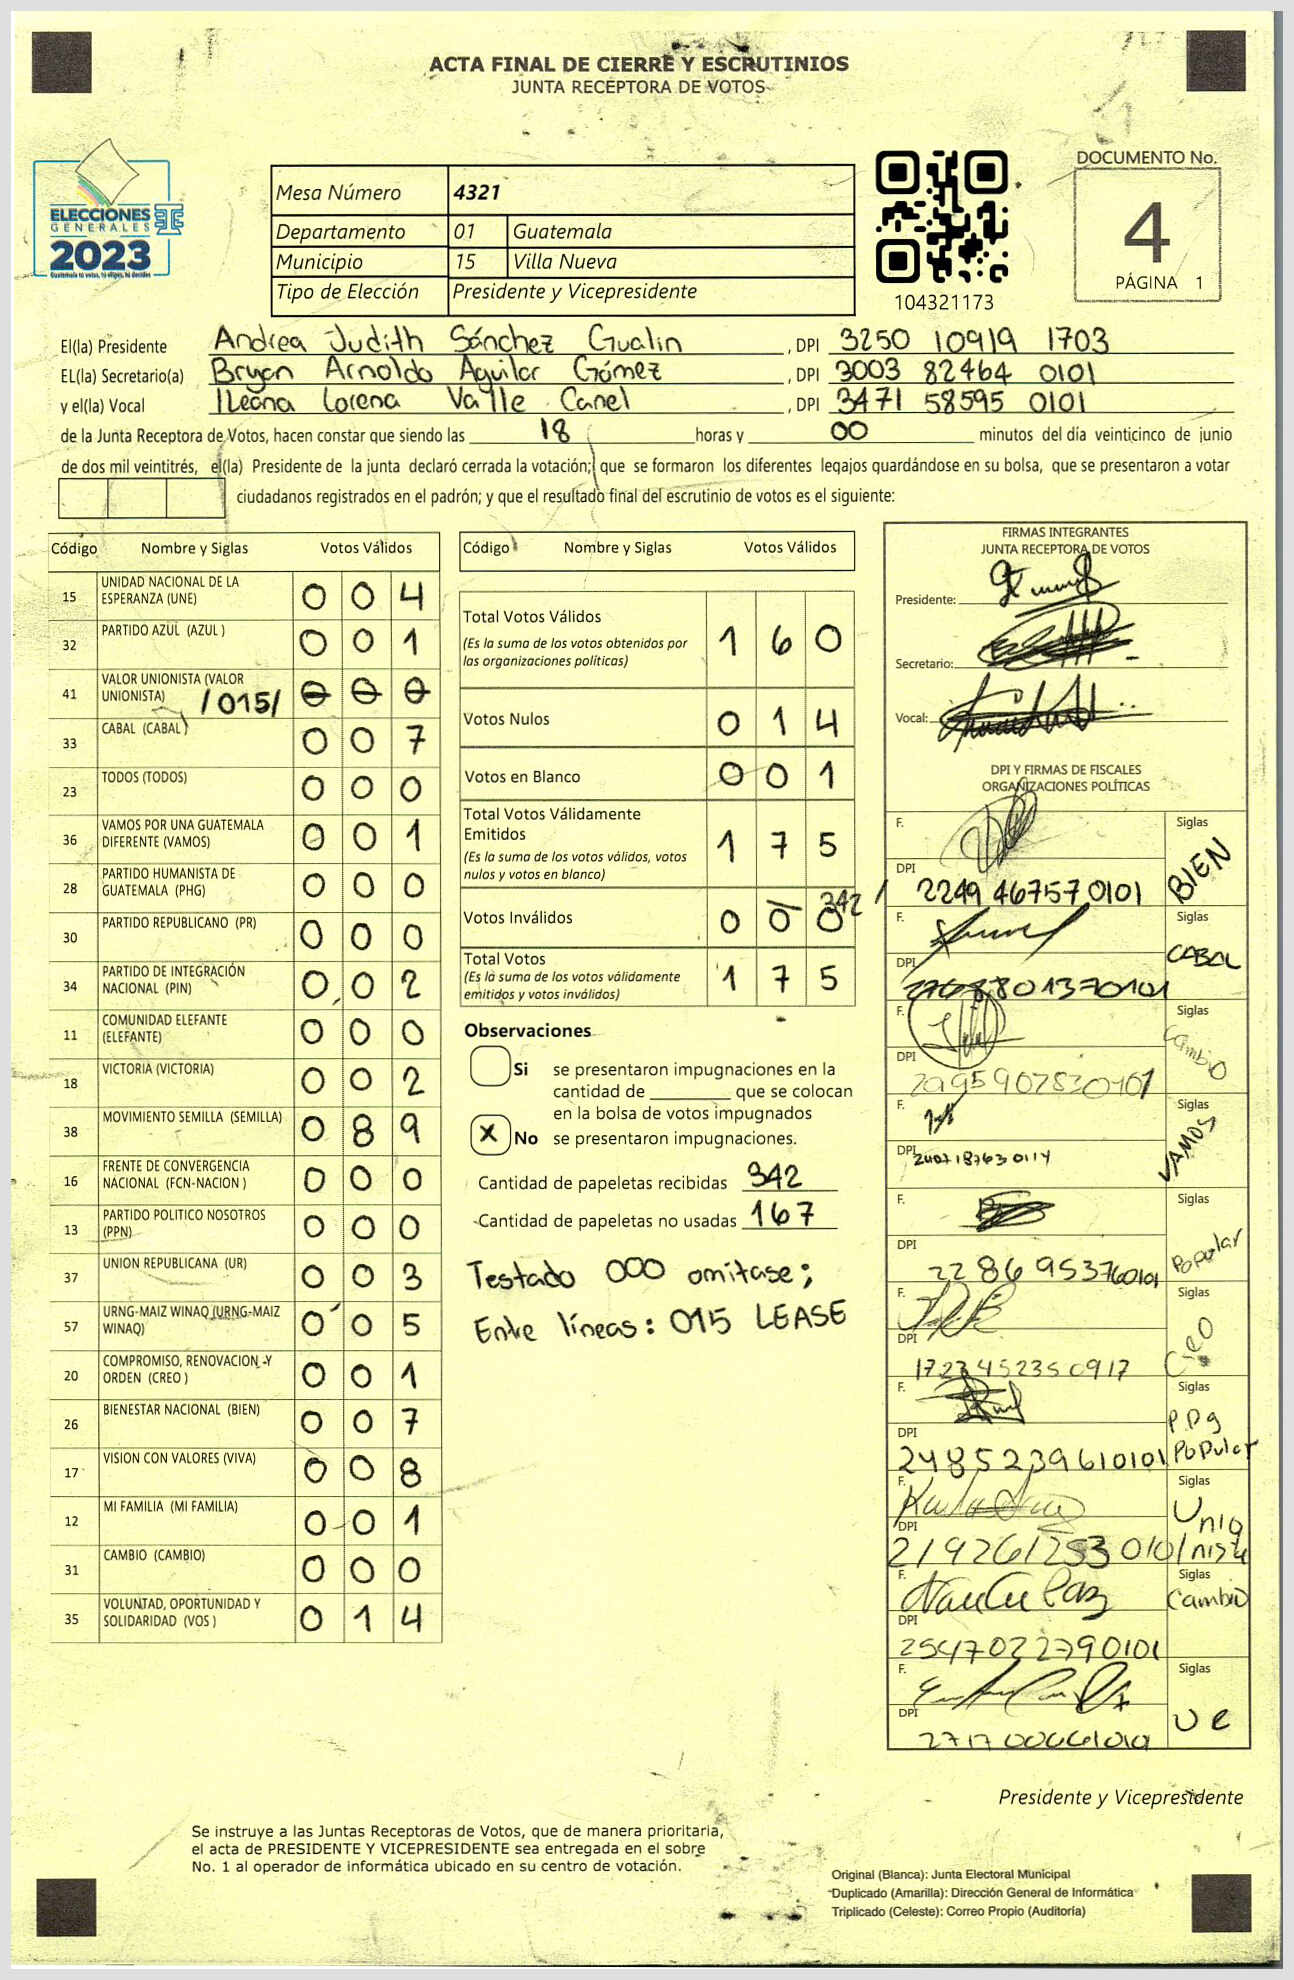 ACTA FINAL DE CIERRE Y ESCRUTINIOS
JUNTA RECEPTORA DE VOTOS
ELECCIONES
GENERALES
2023
Guatemala tú votas, tú eliges, tú decides
Mesa Número 4321
Departamento 01 Guatemala
Municipio 15 Villa Nueva
Tipo de Elección Presidente y Vicepresidente
104321173
DOCUMENTO No.
4
PÁGINA 1
El(la) Presidente Andrea Judith Sánchez Gualin , DPI 3250 10919 1703
EL(la) Secretario(a) Bryan Arnoldo Aguilar Gómez , DPI 3003 82464 0101
y el(la) Vocal ILeana Lorena Valle Canel , DPI 3471 58595 0101
de la Junta Receptora de Votos, hacen constar que siendo las 18 horas y 00 minutos del día veinticinco de junio
de dos mil veintitrés, el(la) Presidente de la junta declaró cerrada la votación; que se formaron los diferentes legajos guardándose en su bolsa, que se presentaron a votar
ciudadanos registrados en el padrón; y que el resultado final del escrutinio de votos es el siguiente:
Código Nombre y Siglas Votos Válidos
15 UNIDAD NACIONAL DE LA ESPERANZA (UNE) 0 0 4
32 PARTIDO AZUL (AZUL ) 0 0 1
41 VALOR UNIONISTA (VALOR UNIONISTA) /015/ 0 0 0
33 CABAL (CABAL ) 0 0 7
23 TODOS (TODOS) 0 0 0
36 VAMOS POR UNA GUATEMALA DIFERENTE (VAMOS) 0 0 1
28 PARTIDO HUMANISTA DE GUATEMALA (PHG) 0 0 0
30 PARTIDO REPUBLICANO (PR) 0 0 0
34 PARTIDO DE INTEGRACIÓN NACIONAL (PIN) 0 0 2
11 COMUNIDAD ELEFANTE (ELEFANTE) 0 0 0
18 VICTORIA (VICTORIA) 0 0 2
38 MOVIMIENTO SEMILLA (SEMILLA) 0 8 9
16 FRENTE DE CONVERGENCIA NACIONAL (FCN-NACION ) 0 0 0
13 PARTIDO POLITICO NOSOTROS (PPN) 0 0 0
37 UNION REPUBLICANA (UR) 0 0 3
57 URNG-MAIZ WINAQ (URNG-MAIZ WINAQ) 0 0 5
20 COMPROMISO, RENOVACION Y ORDEN (CREO ) 0 0 1
26 BIENESTAR NACIONAL (BIEN) 0 0 7
17 VISION CON VALORES (VIVA) 0 0 8
12 MI FAMILIA (MI FAMILIA) 0 0 1
31 CAMBIO (CAMBIO) 0 0 0
35 VOLUNTAD, OPORTUNIDAD Y SOLIDARIDAD (VOS ) 0 1 4
Código Nombre y Siglas Votos Válidos
Total Votos Válidos 1 6 0
(Es la suma de los votos obtenidos por
las organizaciones políticas)
Votos Nulos 0 1 4
Votos en Blanco 0 0 1
Total Votos Válidamente
Emitidos 1 7 5
(Es la suma de los votos válidos, votos
nulos y votos en blanco)
342 /
Votos Inválidos 0 0 0
Total Votos 1 7 5
(Es la suma de los votos válidamente
emitidos y votos inválidos)
Observaciones
Si se presentaron impugnaciones en la
cantidad de ________ que se colocan
en la bolsa de votos impugnados
X No se presentaron impugnaciones.
Cantidad de papeletas recibidas 342
Cantidad de papeletas no usadas 167
Testado 000 omitase;
Entre líneas: 015 LEASE
FIRMAS INTEGRANTES
JUNTA RECEPTORA DE VOTOS
Presidente:
Secretario:
Vocal:
DPI Y FIRMAS DE FISCALES
ORGANIZACIONES POLÍTICAS
F. Siglas BIEN
DPI 2249 46757 0101
F. Siglas CABAL
DPI
F. Siglas Cambio
DPI
F. Siglas VAMOS
DPI
F. Siglas Popular
DPI 2286 95376 0101
F. Siglas
DPI 1723452350917
F. Siglas Popular
DPI 2485239610101
F. Siglas Unionista
DPI
F. Siglas Cambio
DPI 2547022790101
F. Siglas
DPI
Presidente y Vicepresidente
Se instruye a las Juntas Receptoras de Votos, que de manera prioritaria,
el acta de PRESIDENTE Y VICEPRESIDENTE sea entregada en el sobre
No. 1 al operador de informática ubicado en su centro de votación.
Original (Blanca): Junta Electoral Municipal
Duplicado (Amarilla): Dirección General de Informática
Triplicado (Celeste): Correo Propio (Auditoría)